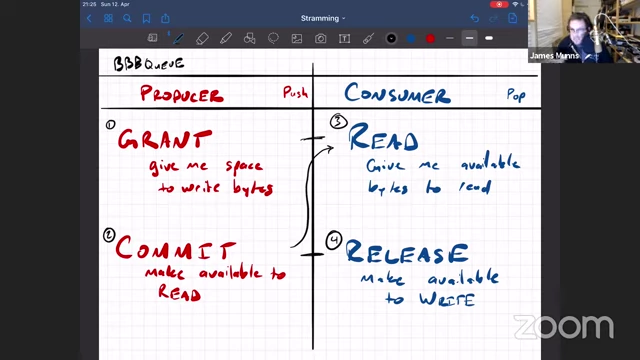 21:25 Sun 12. Apr
Stramming
James Munns
BBBQUEUE
PRODUCER Push
CONSUMER Pop
① GRANT
give me space
to write bytes
② COMMIT
make available to
READ
③ READ
Give me available
bytes to read
④ RELEASE
make available
to WRITE
zoom